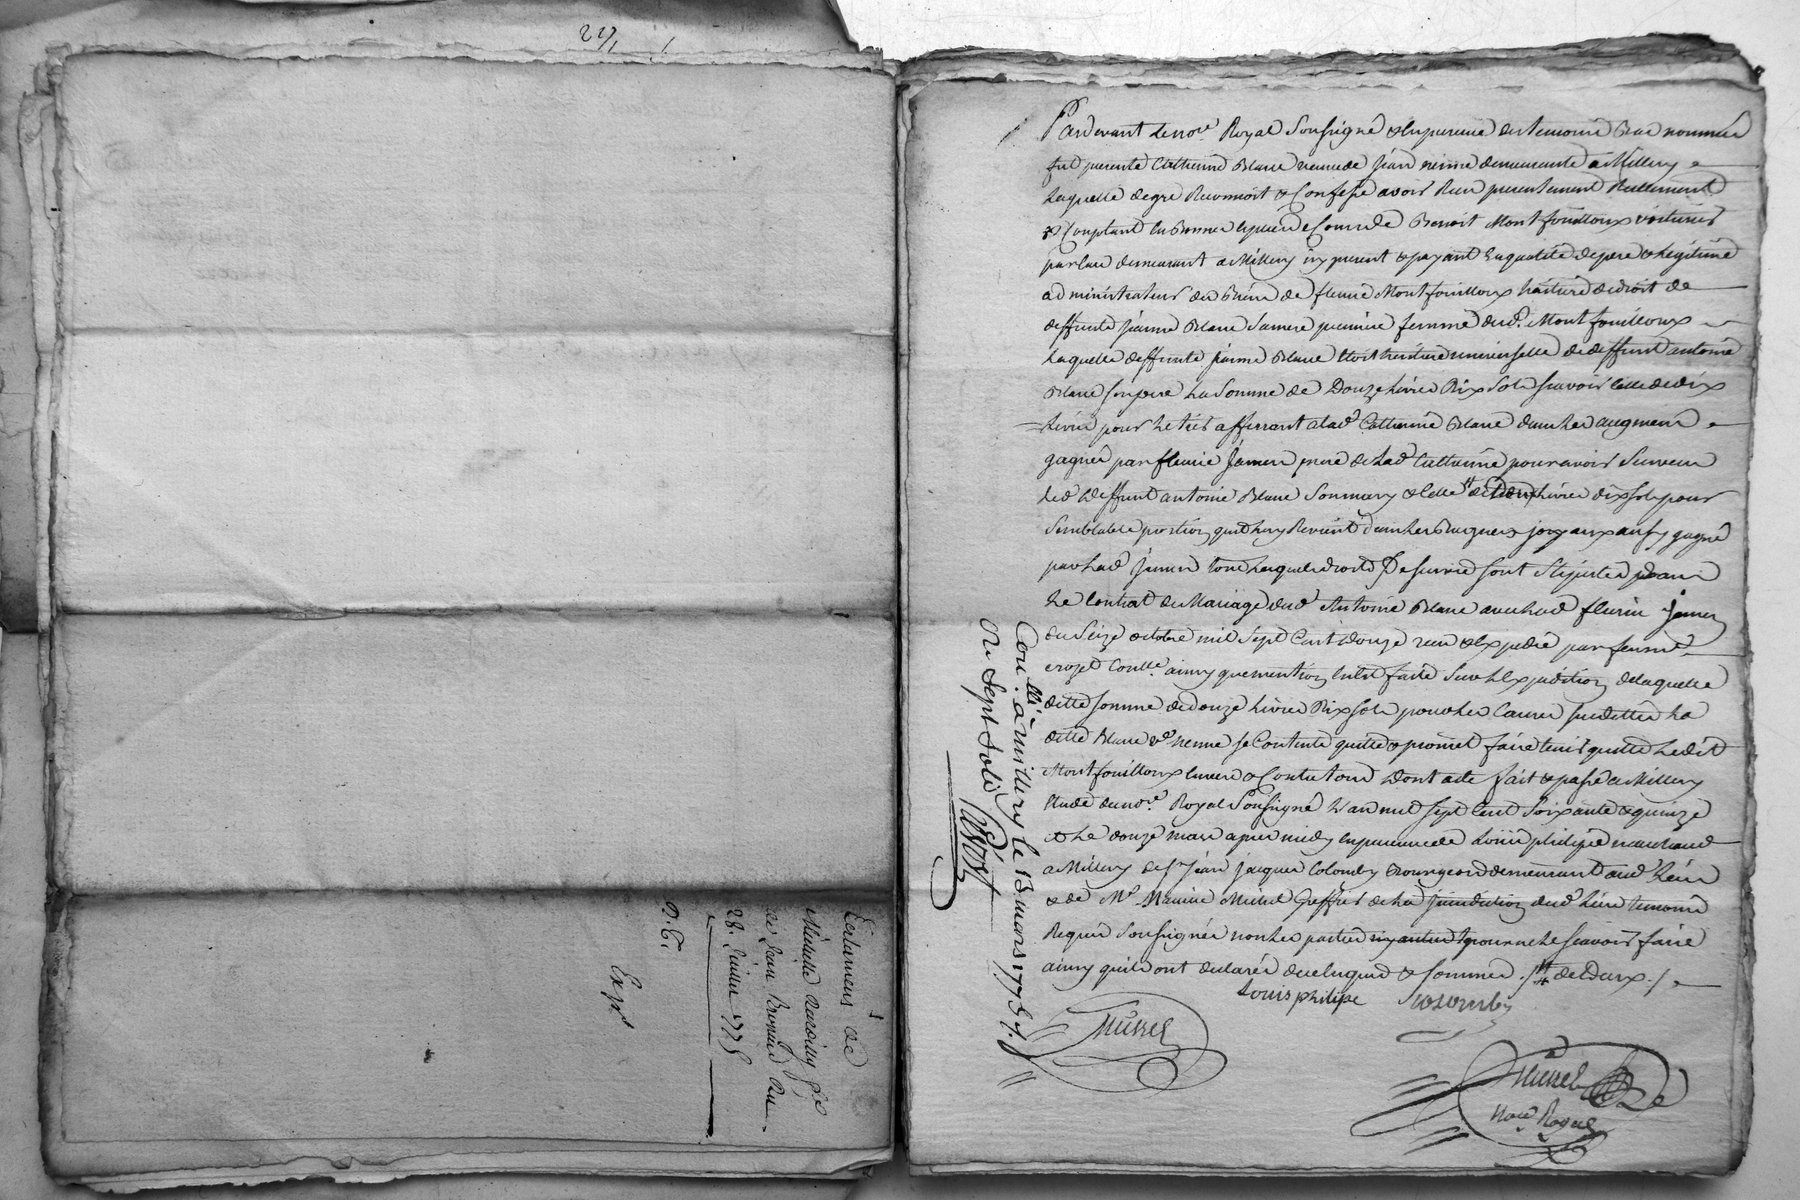 Testament de
Mireille
de Jean
28. 1775
Exp.
Pardevant le no.re Royal Soussigné & En presence des temoins Bas nommés
fut presente Catherine Blanc veuve de Jean nemne demeurante a Millery
Laquelle de gré Reconnoit & Confesse avoir Reçu presentement Réellement
& Comptant En Bonnes Especes de Cours de Benoit Montfouilloux voiturier
par eau demeurant a Millery icy present & payant En qualité de pere & Legitime
administrateur des Biens de fleurie Montfouilloux héritiere de droit de
deffunte jeanne Blanc Sa mere premiere femme dud. Montfouilloux
Laquelle deffunte jeanne Blanc Etoit héritiere universelle de deffunt antoine
Blanc Son pere La Somme de Douze Livres Dix Sols Scavoir Celle de dix
Livres pour Le tiers afferrant a lad. Catherine Blanc dans Les augment
gagnés par fleurie jamen mere de Lad. Catherine pour avoir Survecu
Led. deffunt antoine Blanc Son mary & Celle de Livres dix Sols pour
Semblable portion qui Luy Revient dans Les Bagues & joyaux aussy gagné
par Lad. jamen tous Lesquels droits de Survie Sont Stipulés dans
Le Contrat de Mariage dud. Antoine Blanc avec Lad. fleurie jamen
du Seize octobre mil Sept Cent douze reçu & Expedié par feu m.e
crozet Con.lle ainsy que mention En Est faite Sur L'Expedition de laquelle
ditte Somme de douze Livres Dix Sols pour Les Causes Susdittes La
ditte Blanc v.e nemne Se Contente quitte & promet faire tenir quitte Ledit
Montfouilloux Envers & Contre tous Dont acte fait & passé a Millery
Etude du no.re Royal Soussigné L'an mil Sept Cent Soixante & quinze
& Le douze mars apres midy En presence de Louis philipe marchand
a Millery de S.r Jean Jacques Colomby Bourgeois demeurant aud. Lieu
& de M.e Musset Greffier de La jurisdiction dud. Lieu temoins
Requis Soussignés non Les parties pour ne Le Scavoir faire
ainsy qu'ils ont declaré de ce Enquis & Sommés ./. # de Deux ./.
Louis philipe Colomby
Musset
Musset
No.re Royal
Con.llé à millery le 13 mars 1775
R. Sept Sols